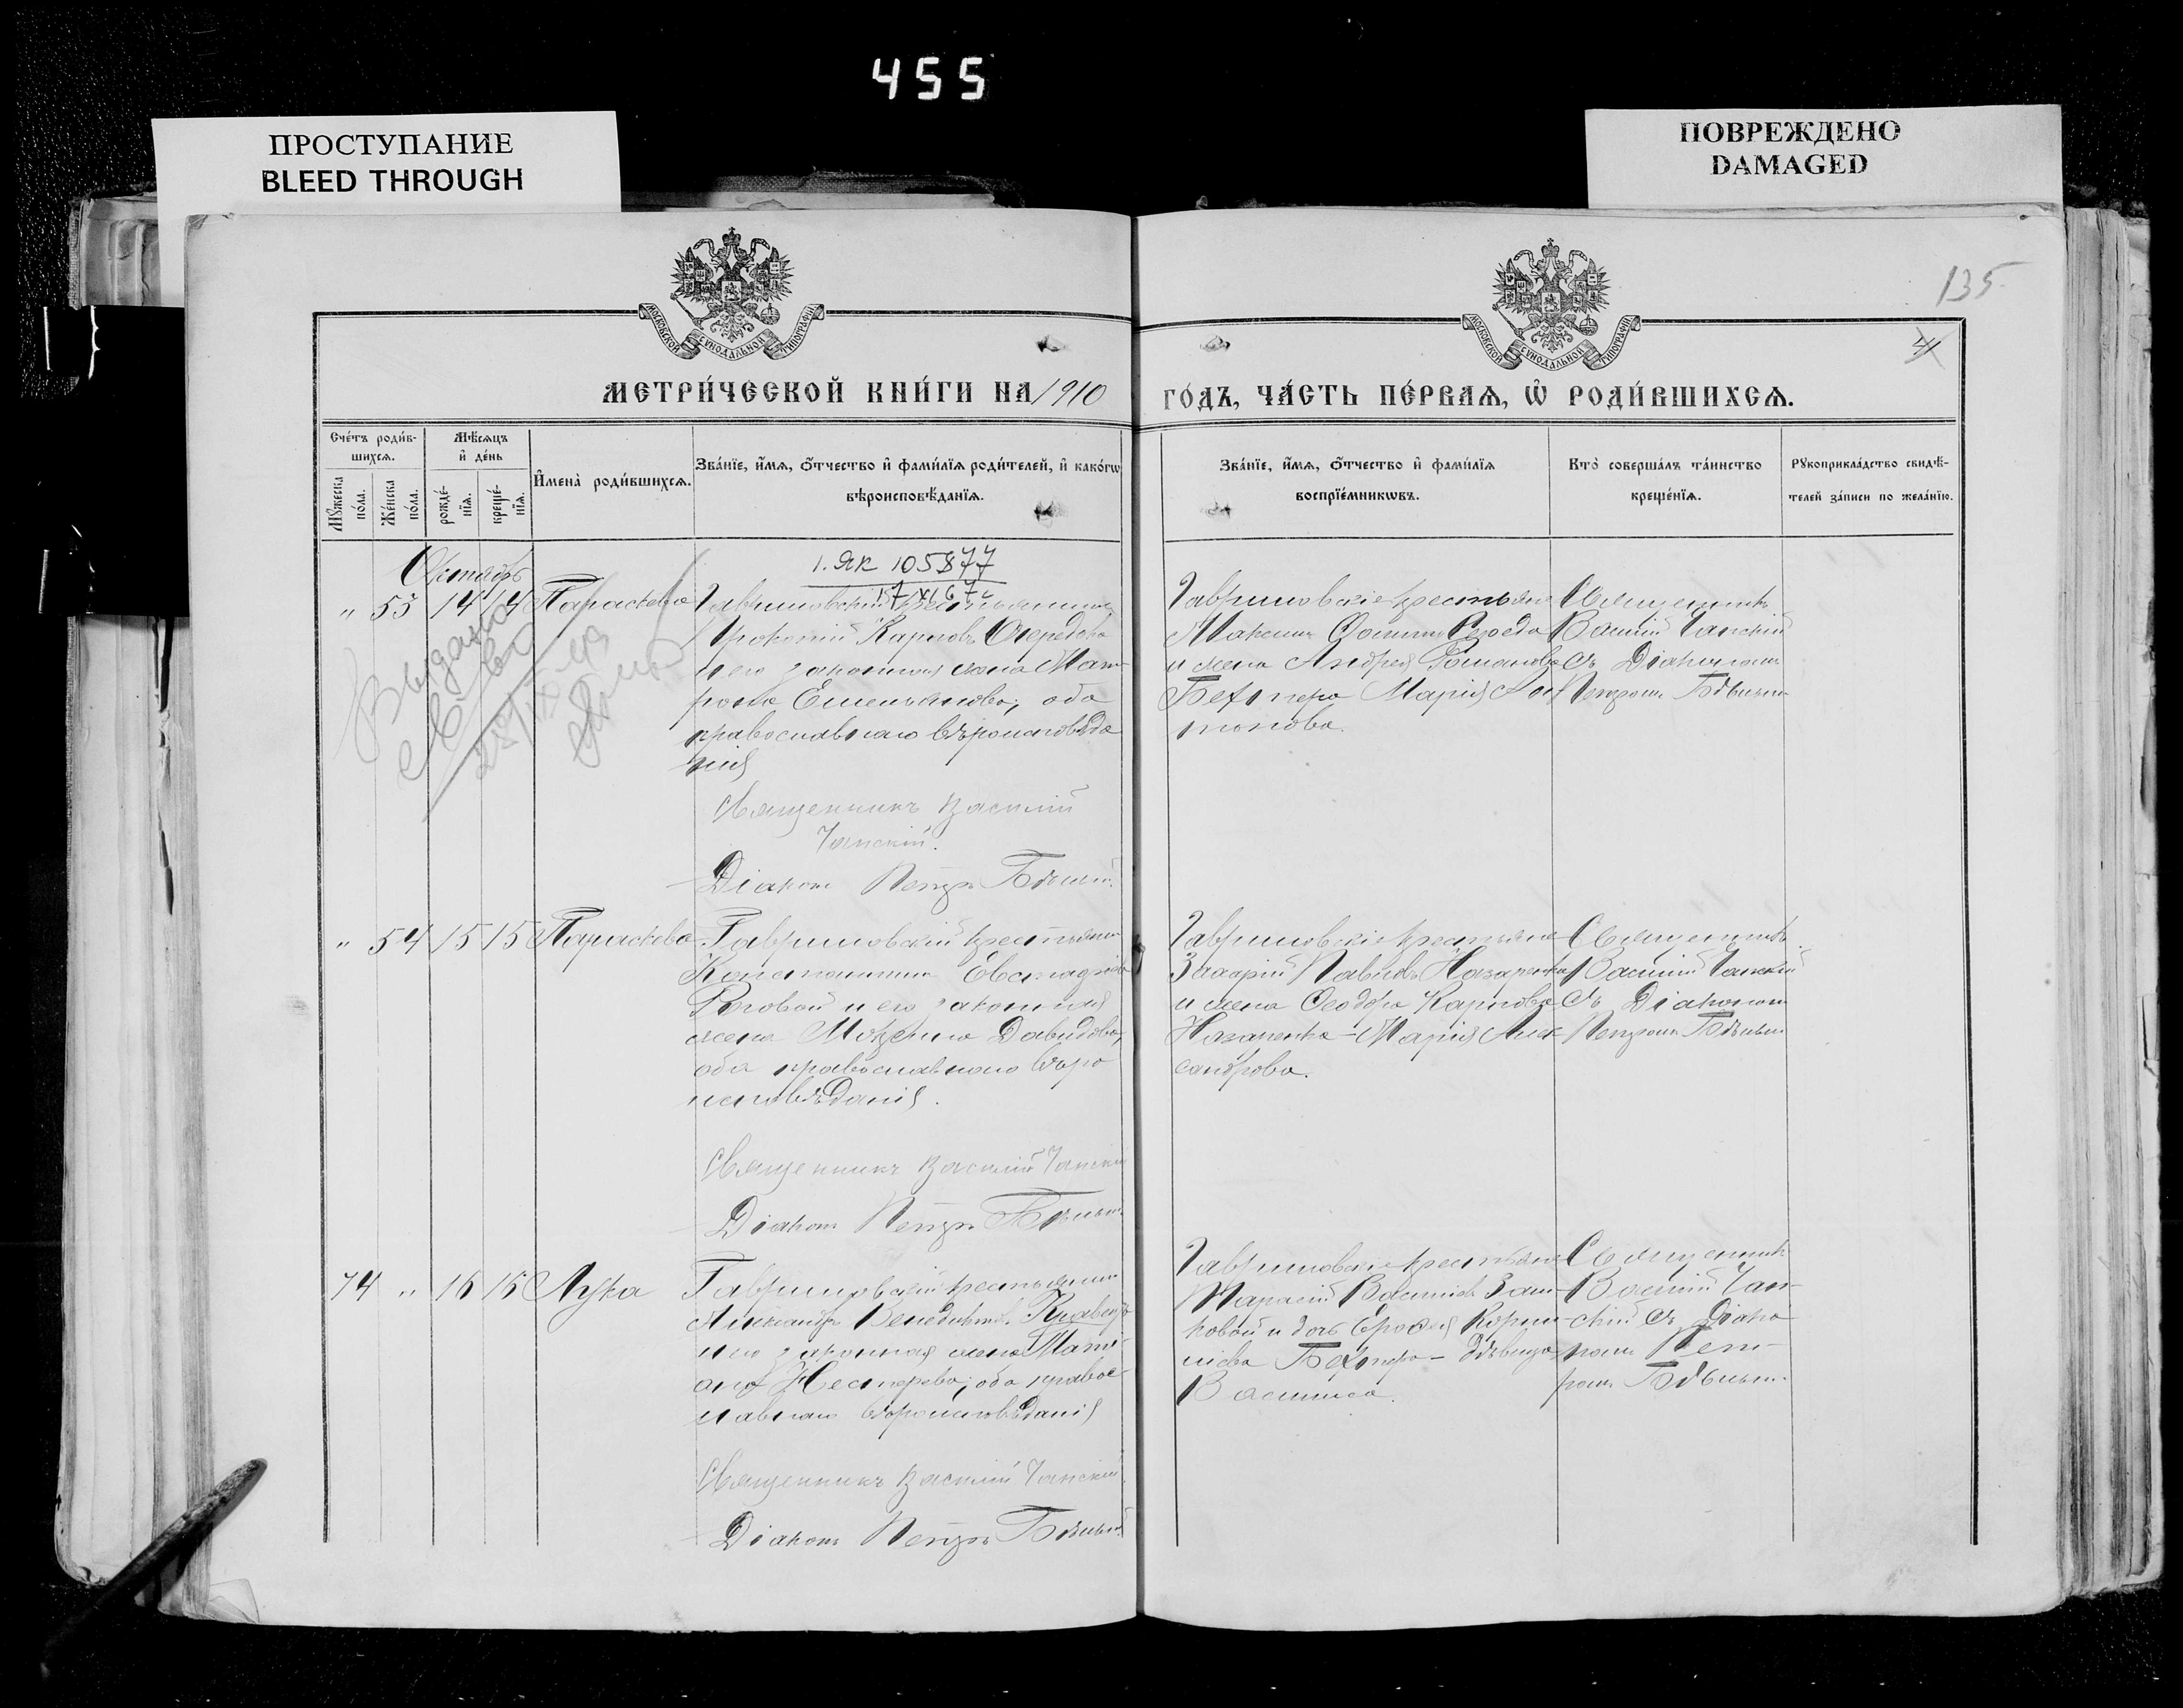 455
ПРОСТУПАНИЕ
BLEED THROUGH
ПОВРЕЖДЕНО
DAMAGED
135
МОСКОВСКОЙ СѴНОДАЛЬНОЙ ТИПОГРАФІИ
МОСКОВСКОЙ СѴНОДАЛЬНОЙ ТИПОГРАФІИ
МЕТРИ́ЧЕСКОЙ КНИ́ГИ НА 1910
ГО́ДЪ, ЧА́СТЬ ПЕ́РВАѦ, Ѡ҆ РОДИ́ВШИХСѦ.
Сче́тъ роди́в-
шихсѧ.
Мѣ́сѧцъ
и҆ де́нь
Мꙋ́жеска
по́ла.
Же́нска
по́ла.
рожде́-
нїѧ.
креще́-
нїѧ.
И҆мена̀ роди́вшихсѧ.
Зва́нїе, и҆́мѧ, ѻ҆́тчество и҆ фами́лїѧ роди́телей, и҆ како́гѡ
вѣроисповѣ́данїѧ.
Зва́нїе, и҆́мѧ, ѻ҆́тчество и҆ фами́лїѧ
воспрїе́мникѡвъ.
Кто̀ соверша́лъ та́инство
креще́нїѧ.
Рꙋкоприкла́дство свидѣ́-
телей за́писи по жела́нїю.
Октябрь
1. ЯК 105877
17/XI 67 г
" 53 14 14 Параскева
Гавриловскій крестьянинъ
Прокопій Карповъ Середа
и его законная жена Мат-
рона Емельянова, оба
православнаго вѣроисповѣда
нія
Выдано
Св-во
Священникъ Василій
Чапскій.
Діаконъ Петръ
Гавриловскіе крестьяне
Максимъ Середа
и жена Андрея Романова
Бехтера Марія Ан
тонова.
Священникъ
Василій Чапскій
съ Діакономъ
Петромъ
" 54 15 15 Параскева
Гавриловскій крестьянинъ
Константинъ Евстафіевъ
Роговой и его законная
жена Давидова,
оба православнаго вѣро
исповѣданія.
Священникъ Василій Чапскій
Діаконъ Петръ
Гавриловскіе крестьяне
Захарій Павловъ Назаренко
и жена Ѳеодора Карпова
Назаренка - Марія Алек
сандрова.
Священникъ
Василій Чапскій
съ Діакономъ
Петромъ
74 " 16 16 Лука
Гавриловскій крестьянинъ
Александръ Венедиктовъ Кравецъ
и его законная жена Тать
Нестерова, оба правос
лавнаго вѣроисповѣданія
Священникъ Василій Чапскій
Діаконъ Петръ
Гавриловскіе крестьяне
Тарасій Васильевъ
и дочь Ерофея Корни
ліева Бехтера - дѣвица
Василиса.
Священникъ
Василій Чап-
скій съ Діако
номъ Пет-
ромъ